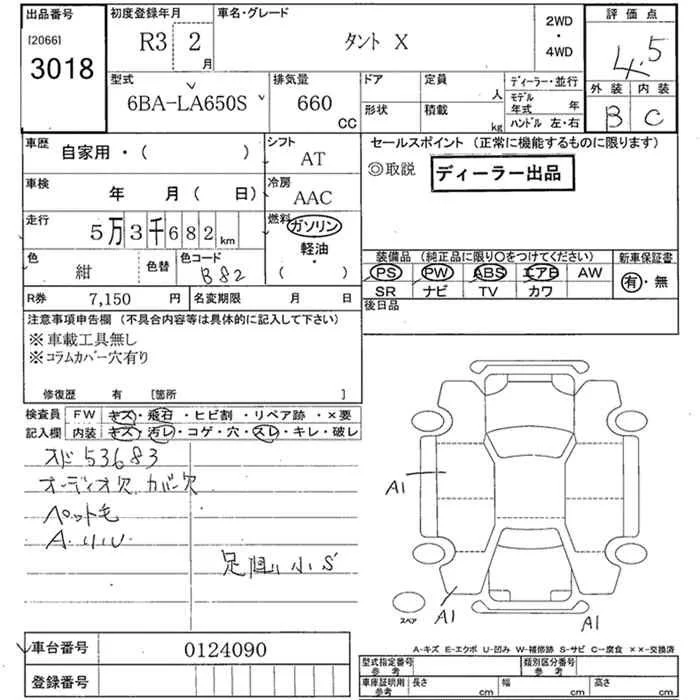 出品番号
[2066]
3018
初度登録年月
R3 2 月
車名・グレード
タント X
2WD
・
4WD
評価点
4.5
外装 内装
B C
型式
6BA-LA650S
排気量
660 CC
ドア 定員 人
形状 積載 kg
ディーラー・並行
モデル年式 年
ハンドル 左・右
車歴 自家用・( )
シフト AT
車検 年 月( 日)
冷房 AAC
走行 5万3千682km
燃料 ガソリン
軽油・
( )
色 紺 色替
色コード B82
R券 7,150 円
名変期限 月 日
セールスポイント (正常に機能するものに限ります)
◎取説 ディーラー出品
装備品 (純正品に限り○をつけてください) 新車保証書
PS PW ABS エアB AW 有・無
SR ナビ TV カワ
後日品
注意事項申告欄 (不具合内容等は具体的に記入して下さい)
※車載工具無し
※コラムカバー穴有り
修復歴 有 [箇所 ]
検査員 FW キズ・飛石・ヒビ割・リペア跡・×要
記入欄 内装 キズ・汚レ・コゲ・穴・スレ・キレ・破レ
スド 53683
オーディオ欠 カバー欠
ペット毛
A・リパレ
足回り小S
A1
A1
A1
スペア
A-キズ E-エクボ U-凹み W-補修跡 S-サビ C-腐食 ××-交換済
車台番号 0124090
登録番号
型式指定番号 参考
類別区分番号 参考
車庫証明用 参考 長さ cm 幅 cm 高さ cm